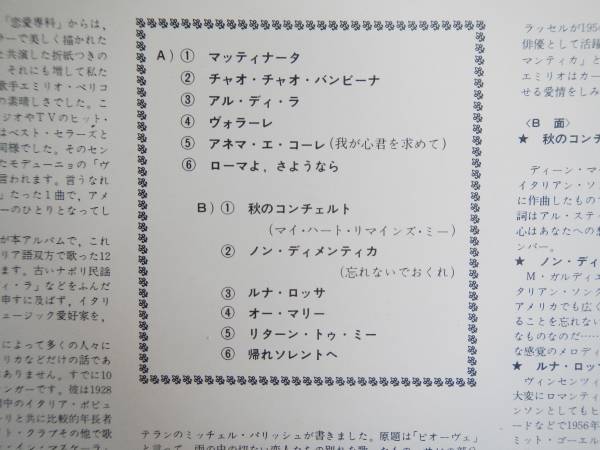 「恋愛専科」からは、
ラーで美しく描かれた
た共演した折紙つきの
。それにも増して私た
歌手エミリオ・ペリコ
の素晴しさでした。こ
ジオやTVのヒット・
はベスト・セラーズと
同様でした。そのセン
たモデューニョの「ヴ
言われます。言うなれ
」たった1曲で、アメ
ーのひとりとなってし
が本アルバムで、これ
リア語双方で歌った12
ます。古いナポリ民謡
ディ・ラ」などをふんだ
申すに及ばず、イタリ
ュージック愛好家を、
によって多くの人々に
リカなどだけの話であ
はありません。すでに10
ンガーです。彼は1928
中のイタリア・ポピュ
リと共に比較的年長者
ト・クラブその他で歌
・イン・マスケーラ」
A) ① マッティナータ
② チャオ・チャオ・バンビーナ
③ アル・ディ・ラ
④ ヴォラーレ
⑤ アネマ・エ・コーレ(我が心君を求めて)
⑥ ローマよ、さようなら
B) ① 秋のコンチェルト
(マイ・ハート・リマインズ・ミー)
② ノン・ディメンティカ
(忘れないでおくれ)
③ ルナ・ロッサ
④ オー・マリー
⑤ リターン・トゥ・ミー
⑥ 帰れソレントへ
テランのミッチェル・パリッシュが書きました。原題は「ピオーヴェ」
ラッセルが1954
俳優として活躍
マンティカ」と
エミリオはカー
せる愛情をしみ
〈B 面〉
★ 秋のコンチ
ディーン・マ
イタリアン・ソン
に作曲したもので
詞はアル・スティ
心はあなたへの想
ンバー。
★ ノン・ディメ
M・ガルディエ
タリアン・ソング
アメリカでも広く
ることを忘れない
なものなのだ……
な感覚のメロディ
★ ルナ・ロッサ
ヴィンセンツィ
大変にロマンティ
ンソンとしてもヒ
ードなどで1956年
ミット・ゴーエル